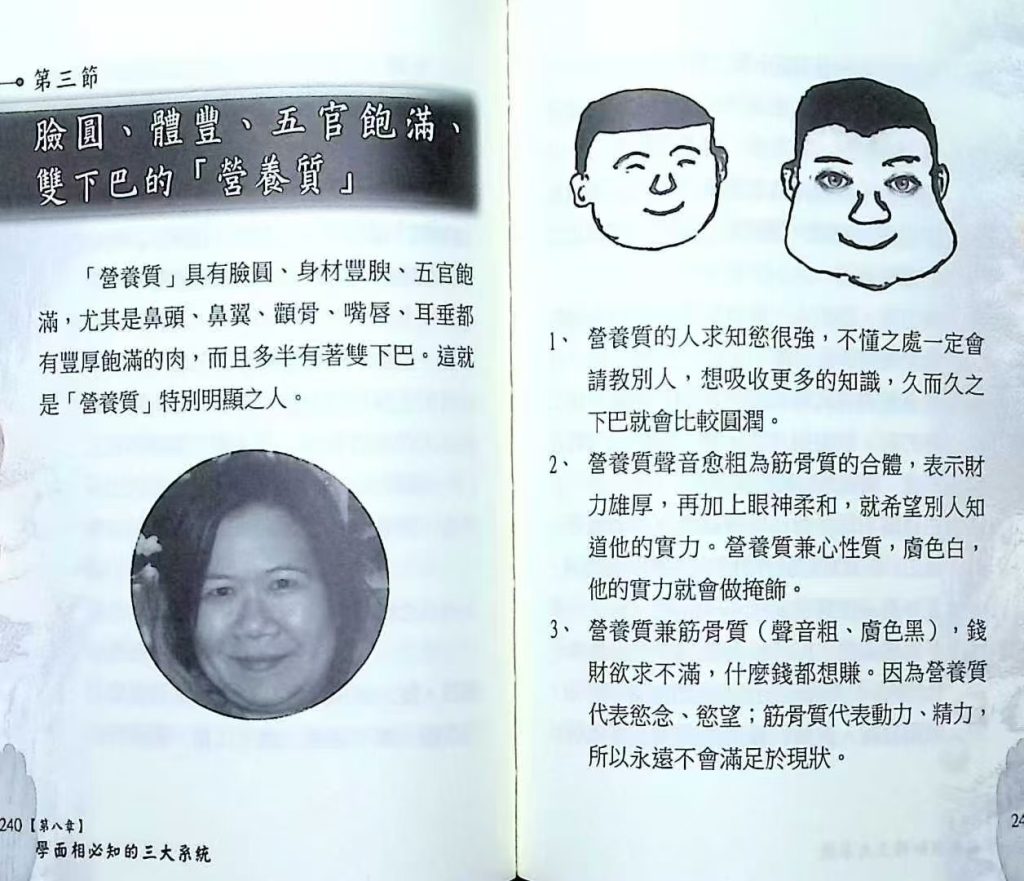 第三節
臉圓、體豐、五官飽滿、
雙下巴的「營養質」
「營養質」具有臉圓、身材豐腴、五官飽
滿，尤其是鼻頭、鼻翼、顴骨、嘴唇、耳垂都
有豐厚飽滿的肉，而且多半有著雙下巴。這就
是「營養質」特別明顯之人。
240【第八章】
學面相必知的三大系統
1、營養質的人求知慾很強，不懂之處一定會
請教別人，想吸收更多的知識，久而久之
下巴就會比較圓潤。
2、營養質聲音愈粗為筋骨質的合體，表示財
力雄厚，再加上眼神柔和，就希望別人知
道他的實力。營養質兼心性質，膚色白，
他的實力就會做掩飾。
3、營養質兼筋骨質（聲音粗、膚色黑），錢
財欲求不滿，什麼錢都想賺。因為營養質
代表慾念、慾望；筋骨質代表動力、精力，
所以永遠不會滿足於現狀。